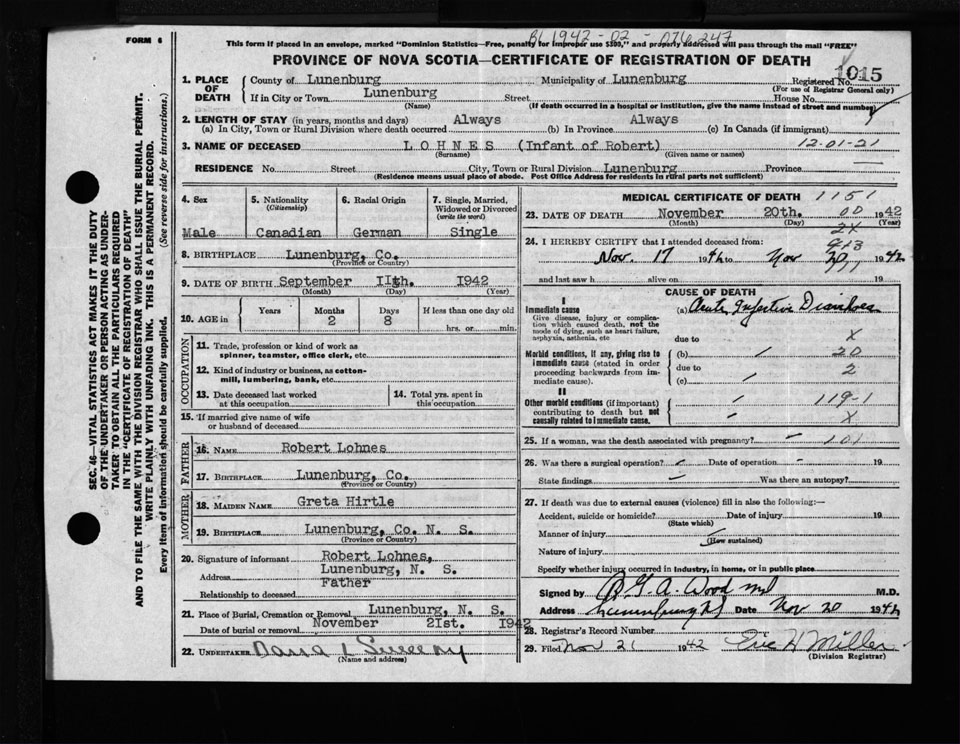 BL 1942-02-076247
FORM 6
This form if placed in an envelope, marked "Dominion Statistics—Free, penalty for improper use $300," and properly addressed will pass through the mail "FREE"
PROVINCE OF NOVA SCOTIA—CERTIFICATE OF REGISTRATION OF DEATH
SEC. 46—VITAL STATISTICS ACT MAKES IT THE DUTY
OF THE UNDERTAKER OR PERSON ACTING AS UNDER-
TAKER TO OBTAIN ALL THE PARTICULARS REQUIRED
IN THE "CERTIFICATE OF REGISTRATION OF DEATH"
AND TO FILE THE SAME WITH THE DIVISION REGISTRAR WHO SHALL ISSUE THE BURIAL PERMIT.
WRITE PLAINLY WITH UNFADING INK. THIS IS A PERMANENT RECORD.
Every item of information should be carefully supplied. (See reverse side for instructions.)
1. PLACE OF DEATH County of Lunenburg Municipality of Lunenburg Registered No. 1015
(For use of Registrar General only)
If in City or Town Lunenburg Street House No.
(Name) (If death occurred in a hospital or institution, give the name instead of street and number)
2. LENGTH OF STAY (in years, months and days) Always Always
(a) In City, Town or Rural Division where death occurred (b) In Province (c) In Canada (if immigrant)
3. NAME OF DECEASED LOHNES (Infant of Robert) 12-01-21
(Surname) (Given name or names)
RESIDENCE No. Street City, Town or Rural Division Lunenburg Province
(Residence means usual place of abode. Post Office Address for residents in rural parts not sufficient)
4. Sex 5. Nationality (Citizenship) 6. Racial Origin 7. Single, Married, Widowed or Divorced (write the word)
Male Canadian German Single
8. BIRTHPLACE Lunenburg, Co.
(Province or Country)
9. DATE OF BIRTH September 11th. 1942
(Month) (Day) (Year)
10. AGE in Years Months Days If less than one day old
2 8 hrs. or min.
OCCUPATION
11. Trade, profession or kind of work as
spinner, teamster, office clerk, etc.
12. Kind of industry or business, as cotton-
mill, lumbering, bank, etc.
13. Date deceased last worked at this occupation 14. Total yrs. spent in this occupation
15. If married give name of wife
or husband of deceased
FATHER
16. NAME Robert Lohnes
17. BIRTHPLACE Lunenburg, Co.
(Province or Country)
MOTHER
18. MAIDEN NAME Greta Hirtle
19. BIRTHPLACE Lunenburg, Co. N. S.
(Province or Country)
20. Signature of informant Robert Lohnes,
Address Lunenburg, N. S.
Relationship to deceased Father
21. Place of Burial, Cremation or Removal Lunenburg, N. S.
Date of burial or removal November 21st. 1942
22. UNDERTAKER
(Name and address)
MEDICAL CERTIFICATE OF DEATH 1151
23. DATE OF DEATH November 20th. 00 1942
(Month) (Day) (Year)
2x
24. I HEREBY CERTIFY that I attended deceased from:
Nov. 17 1942 to Nov 20 1942
and last saw h alive on 19
CAUSE OF DEATH
I
Immediate cause (a) Acute Infective Diarrhoea
Give disease, injury or complica-
tion which caused death, not the
mode of dying, such as heart failure,
asphyxia, asthenia, etc due to x
Morbid conditions, if any, giving rise to (b) 20
immediate cause (stated in order due to 2
proceeding backwards from im- (c)
mediate cause).
II
Other morbid conditions (if important) 119-1
contributing to death but not x
causally related to immediate cause.
25. If a woman, was the death associated with pregnancy? 101
26. Was there a surgical operation? Date of operation 19
State findings Was there an autopsy?
27. If death was due to external causes (violence) fill in also the following:—
Accident, suicide or homicide? Date of injury 19
(State which)
Manner of injury
(How sustained)
Nature of injury
Specify whether injury occurred in industry, in home, or in public place
Signed by R G. A. Wood md M.D.
Address Lunenburg NS Date Nov 20 1942
28. Registrar's Record Number
29. Filed Nov 21 1942 Eric H Miller
(Division Registrar)